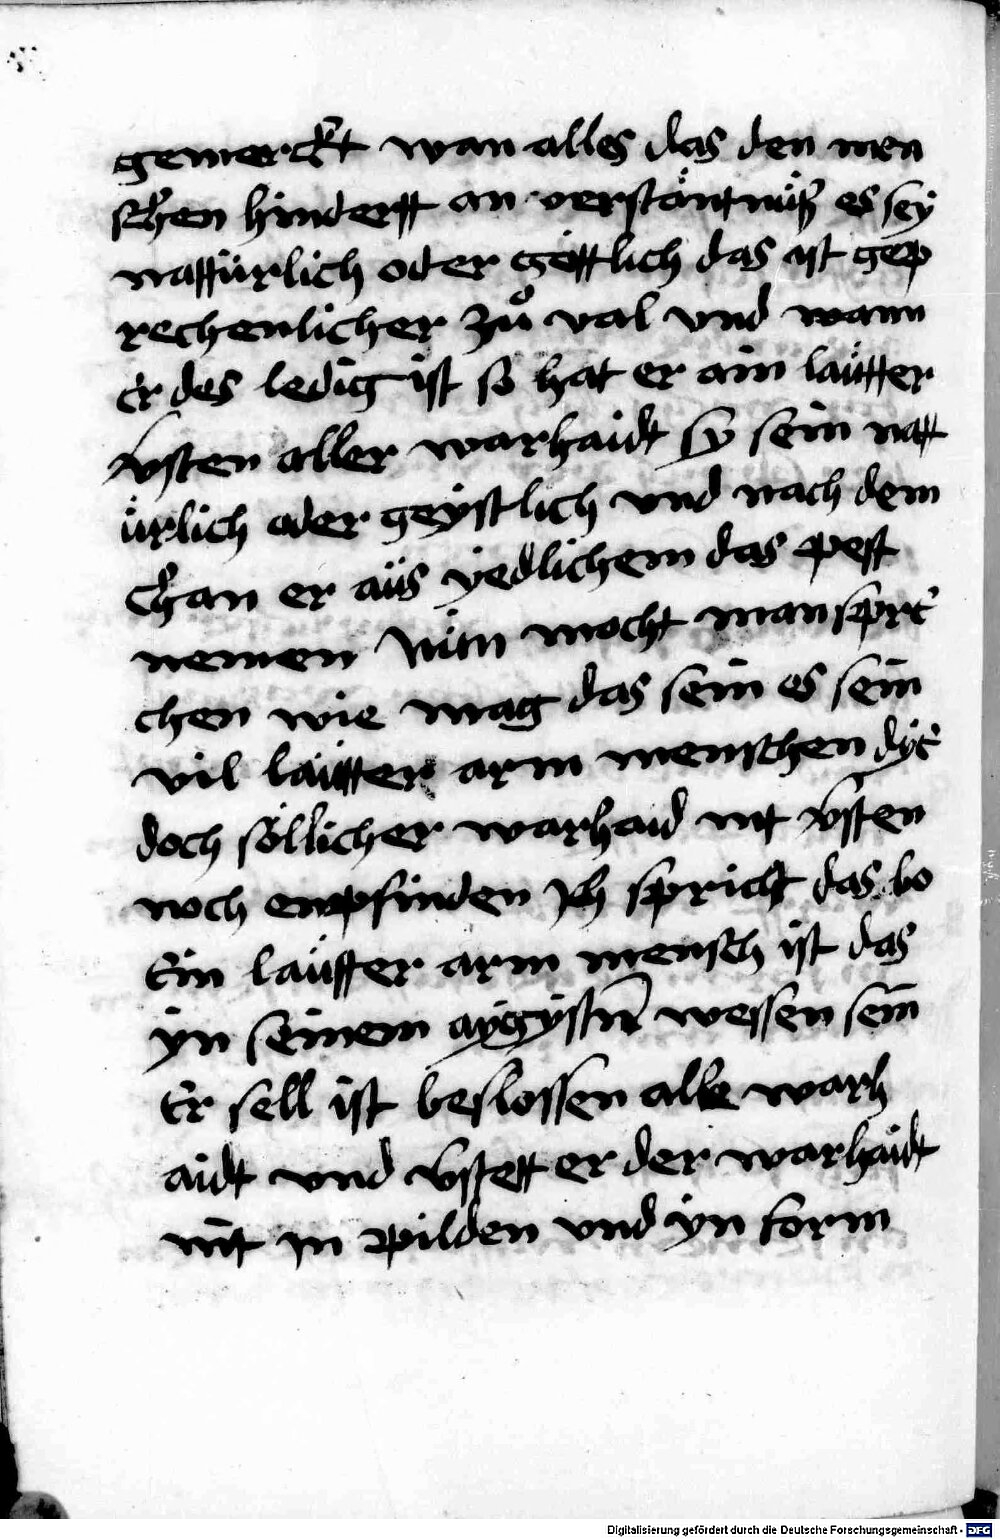 gemerckt wan alles das den men
schen hindertt an verstäntnüß es sey
nattürlich oder göttlich das ist gep
rechenlicher zů val vnd wann
er des ledig ist so hat er ain laütter
v̄sten aller warhaidt sy sein natt
ürlich oder geystlich vnd nach dem
chan er aüs yedlichem das pest
nemen Nün mocht man spre
chen wie mag das sein es sein
vil laütter arm menschen dye
doch söllicher warhaid nit v̄sten
noch empfinden Jch sprich das bo
Ein laütter arm mensch ist das
yn seinem wessen sein
Er sell ist beslossen alle warh
aidt vnd v̄stett er der warhaidt
nit in pilden vnd yn form
Digitalisierung gefördert durch die Deutsche Forschungsgemeinschaft - DFG